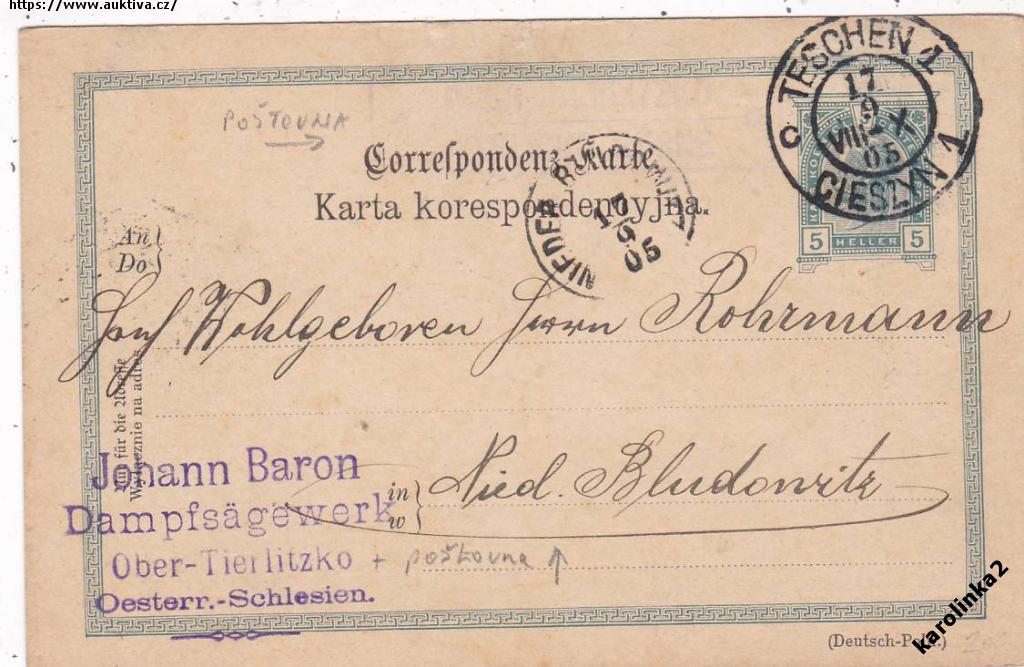 https://www.auktiva.cz/
TESCHEN 1
17
9
VIII-
05
C
CIESZYN 1
POŠTOVNA
Correspondenz-Karte.
Karta korespondencyjna.
NIEDER
17
9
05
An
Do
5 HELLER 5
Wohlgeboren Herrn Rohrmann
Nur für die Adresse
Wyłącznie na adres
in
w
Nied. Bludowitz
Johann Baron
Dampfsägewerk
Ober-Tierlitzko + poštovna
Oesterr.-Schlesien.
(Deutsch-Poln.)
karolinka2